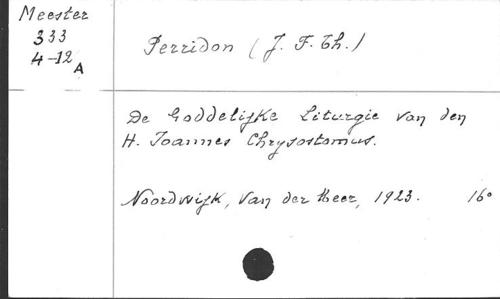 Meester
333
4-12
A
Perridon (J. F. Th.)
De Goddelijke Liturgie van den
H. Joannes Chrysostomus.
Noordwijk, van der Meer, 1923. 16°